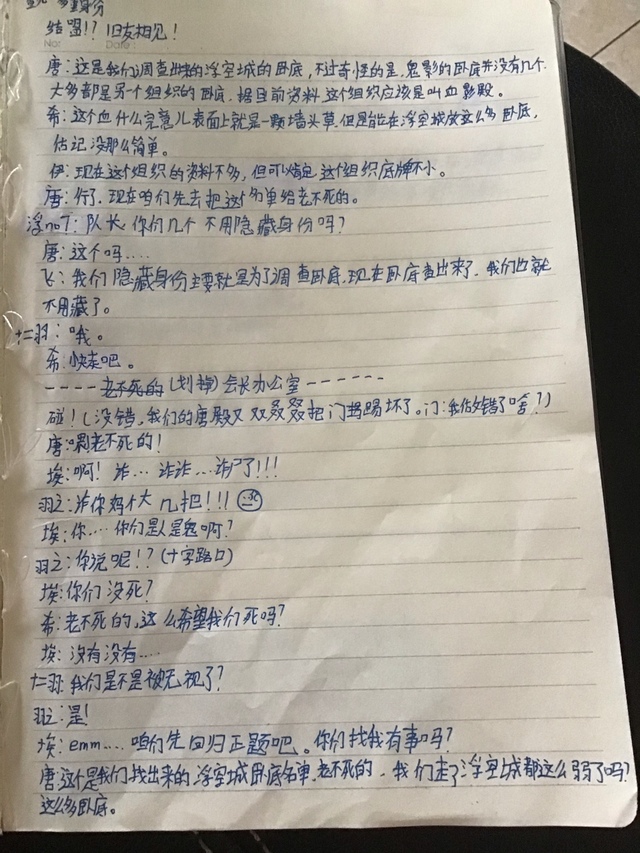 身份
结盟!? 旧友相见!
No: Date:
唐:这是我们调查出来的浮空城的卧底,不过奇怪的是,鬼影的卧底并没有几个
大多都是另一个组织的卧底,据目前资料,这个组织应该是叫血影殿。
希:这个血什么完意儿表面上就是一颗墙头草,但是能在浮空城放这么多卧底,
估记没那么简单。
伊:现在这个组织的资料不多,但可以肯定这个组织底牌不小。
唐:行了.现在咱们先去把这个名单给老不死的。
浮no7:队长,你们几个不用隐藏身份吗?
唐:这个吗....
飞:我们隐藏身份主要就是为了调查卧底,现在卧底查出来了,我们也就
不用藏了。
十二羽:哦。
希:快走吧。
----老不死的(划掉)会长办公室------
碰!(没错,我们的唐殿又双叒叕把门踢坏了。门:我佐错了啥?)
唐:老不死的!
埃:啊!诈...诈诈...诈尸了!!!
羽之:诈你妈个大几把!!!
埃:你....你们是人是鬼啊?
羽之:你说呢!?(十字路口)
埃:你们没死?
希:老不死的,这么希望我们死吗?
埃:没有没有....
十二羽:我们是不是被无视了?
羽之:是!
埃:emm....咱们先回归正题吧。你们找我有事吗?
唐:这个是我们找出来的浮空城卧底名单.老不死的,我们走了浮空城都这么弱了吗?
这么多卧底。